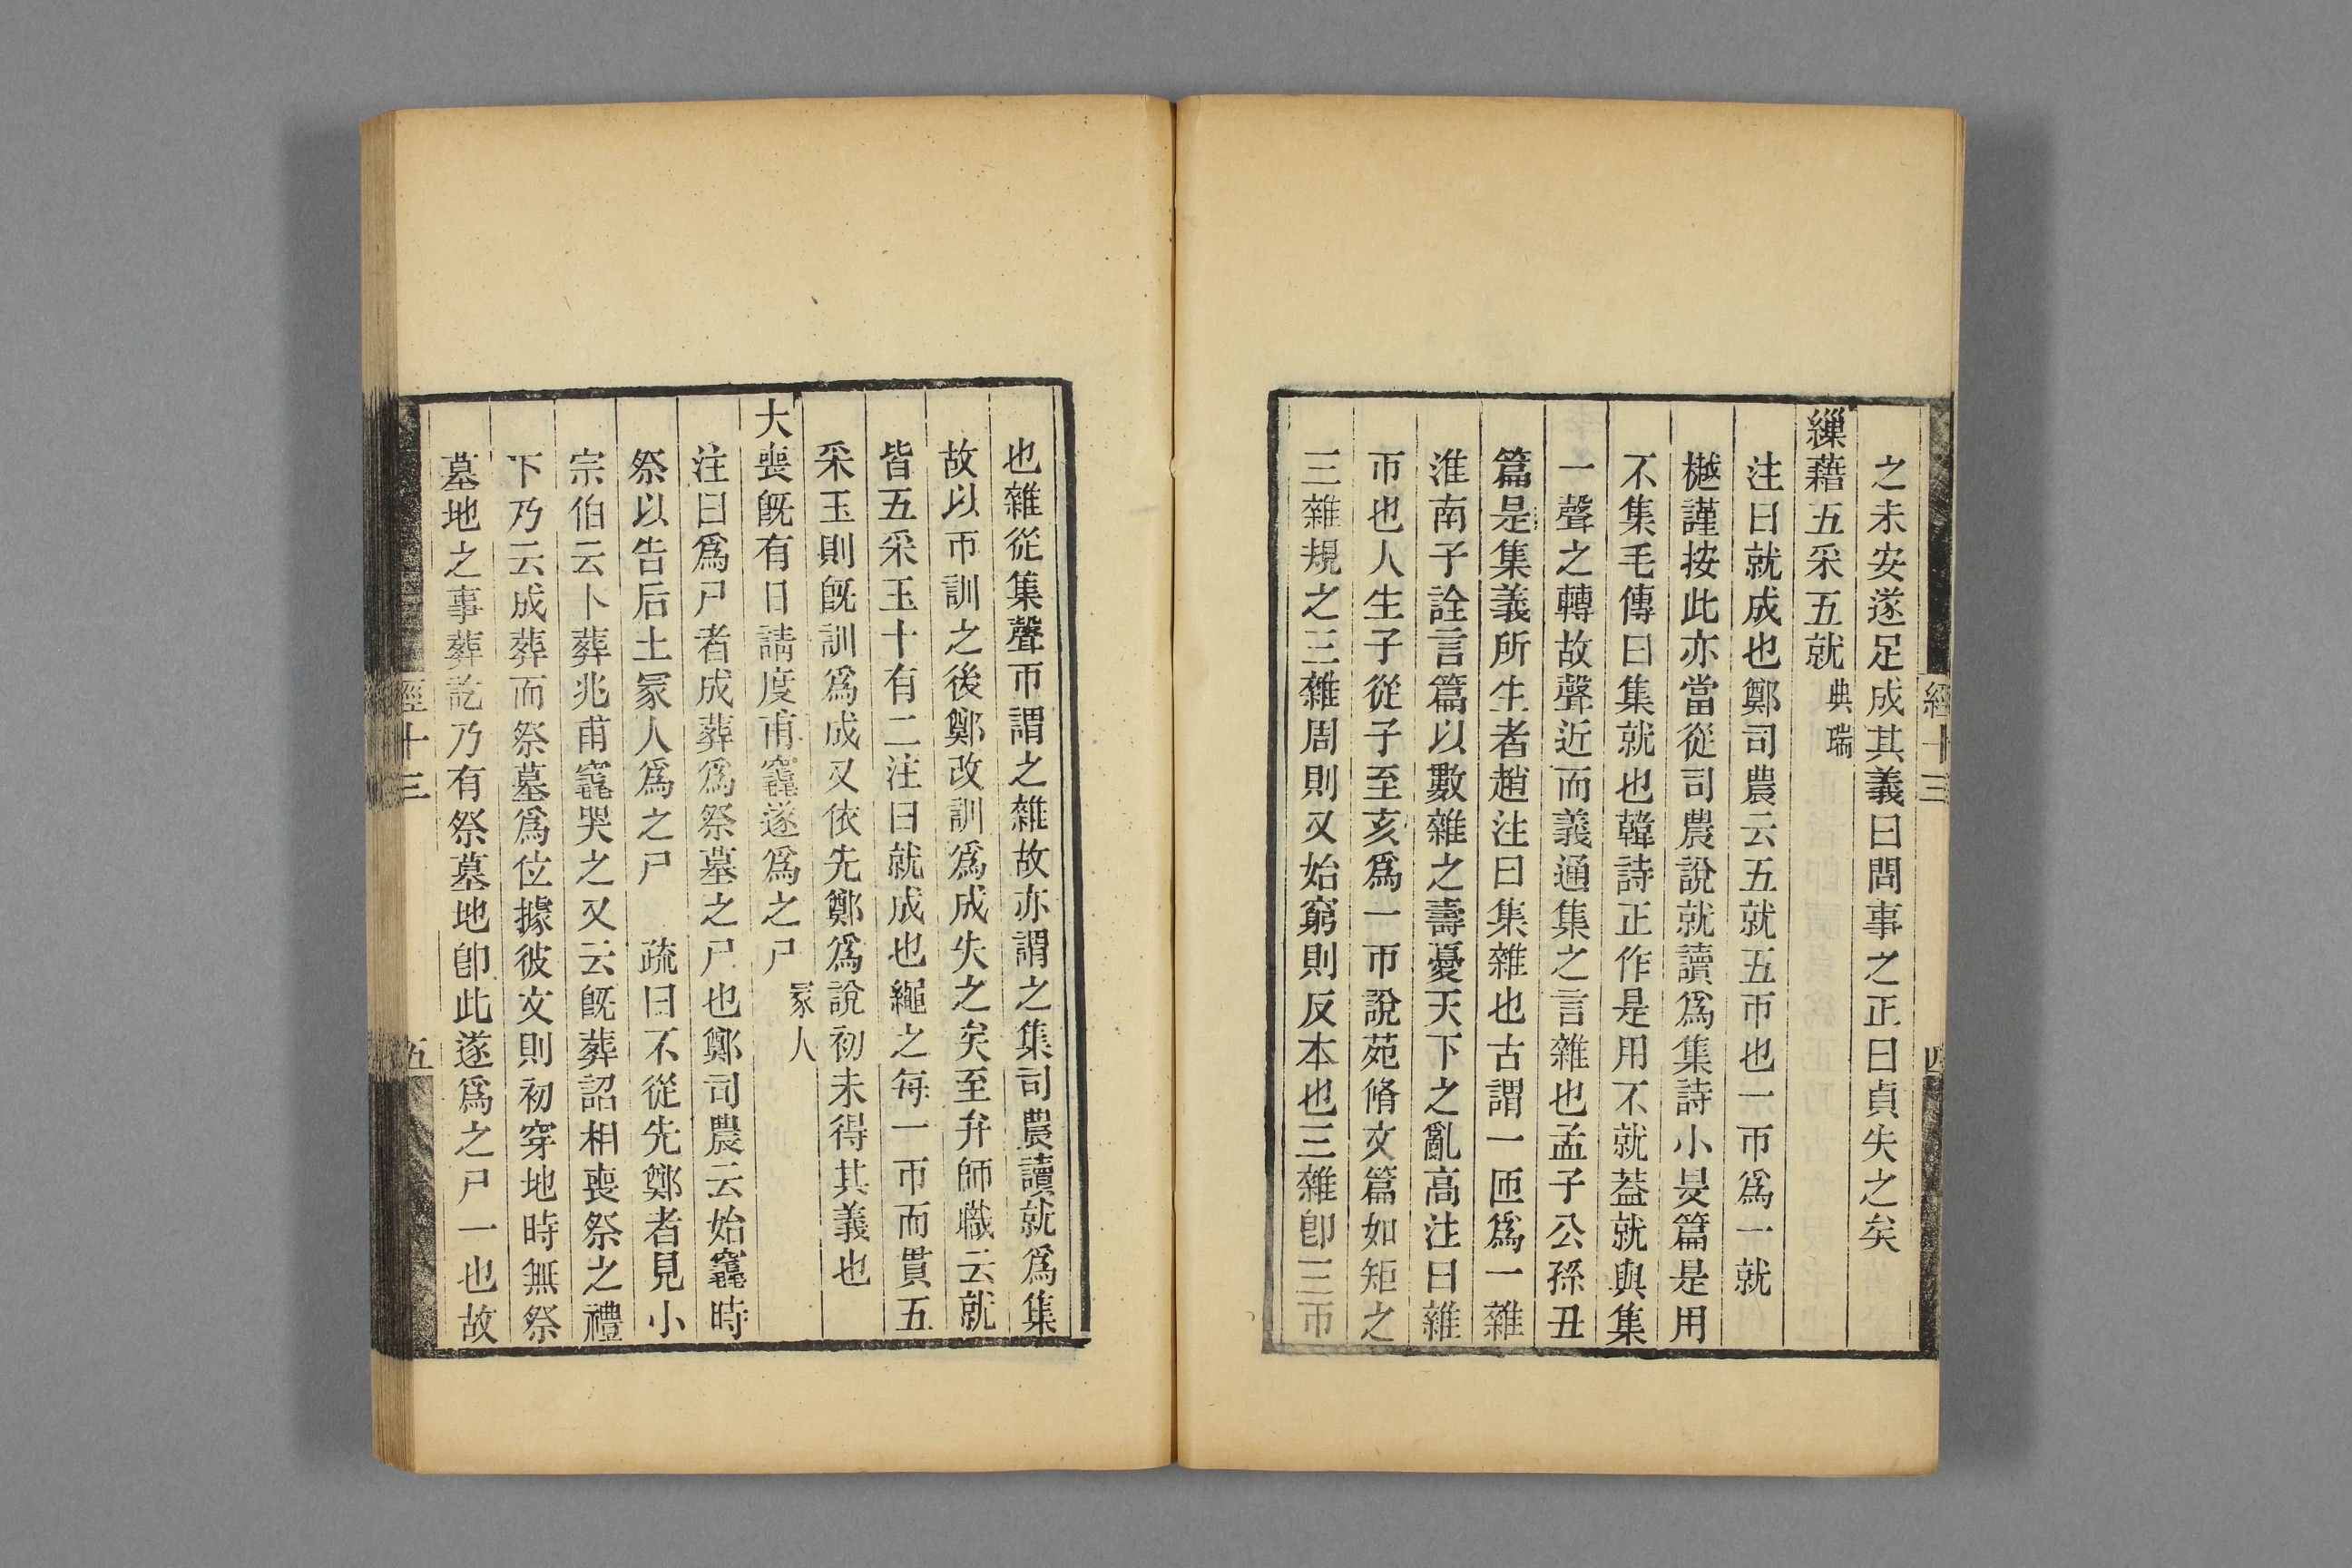 之未安遂足成其義曰問事之正曰貞失之矣
繅藉五采五就 典瑞
注曰就成也鄭司農云五就五帀也一帀爲一就
樾謹按此亦當從司農說就讀爲集詩小旻篇是用
不集毛傳曰集就也韓詩正作是用不就葢就與集
一聲之轉故聲近而義通集之言雜也孟子公孫丑
篇是集義所生者趙注曰集雜也古謂一匝爲一雜
淮南子詮言篇以數雜之壽憂天下之亂高注曰雜
帀也人生子從子至亥爲一帀說苑脩文篇如矩之
三雜規之三雜周則又始窮則反本也三雜卽三帀
經十三
四
也雜從集聲帀謂之雜故亦謂之集司農讀就爲集
故以帀訓之後鄭改訓爲成失之矣至弁師職云就
皆五采玉十有二注曰就成也繩之每一帀而貫五
采玉則旣訓爲成又依先鄭爲說初未得其義也
大喪旣有日請度甫竁遂爲之尸 冢人
注曰爲尸者成葬爲祭墓之尸也鄭司農云始竁時
祭以告后土冢人爲之尸 疏曰不從先鄭者見小
宗伯云卜葬兆甫竁哭之又云旣葬詔相喪祭之禮
下乃云成葬而祭墓爲位據彼文則初穿地時無祭
墓地之事葬訖乃有祭墓地卽此遂爲之尸一也故
經十三
五